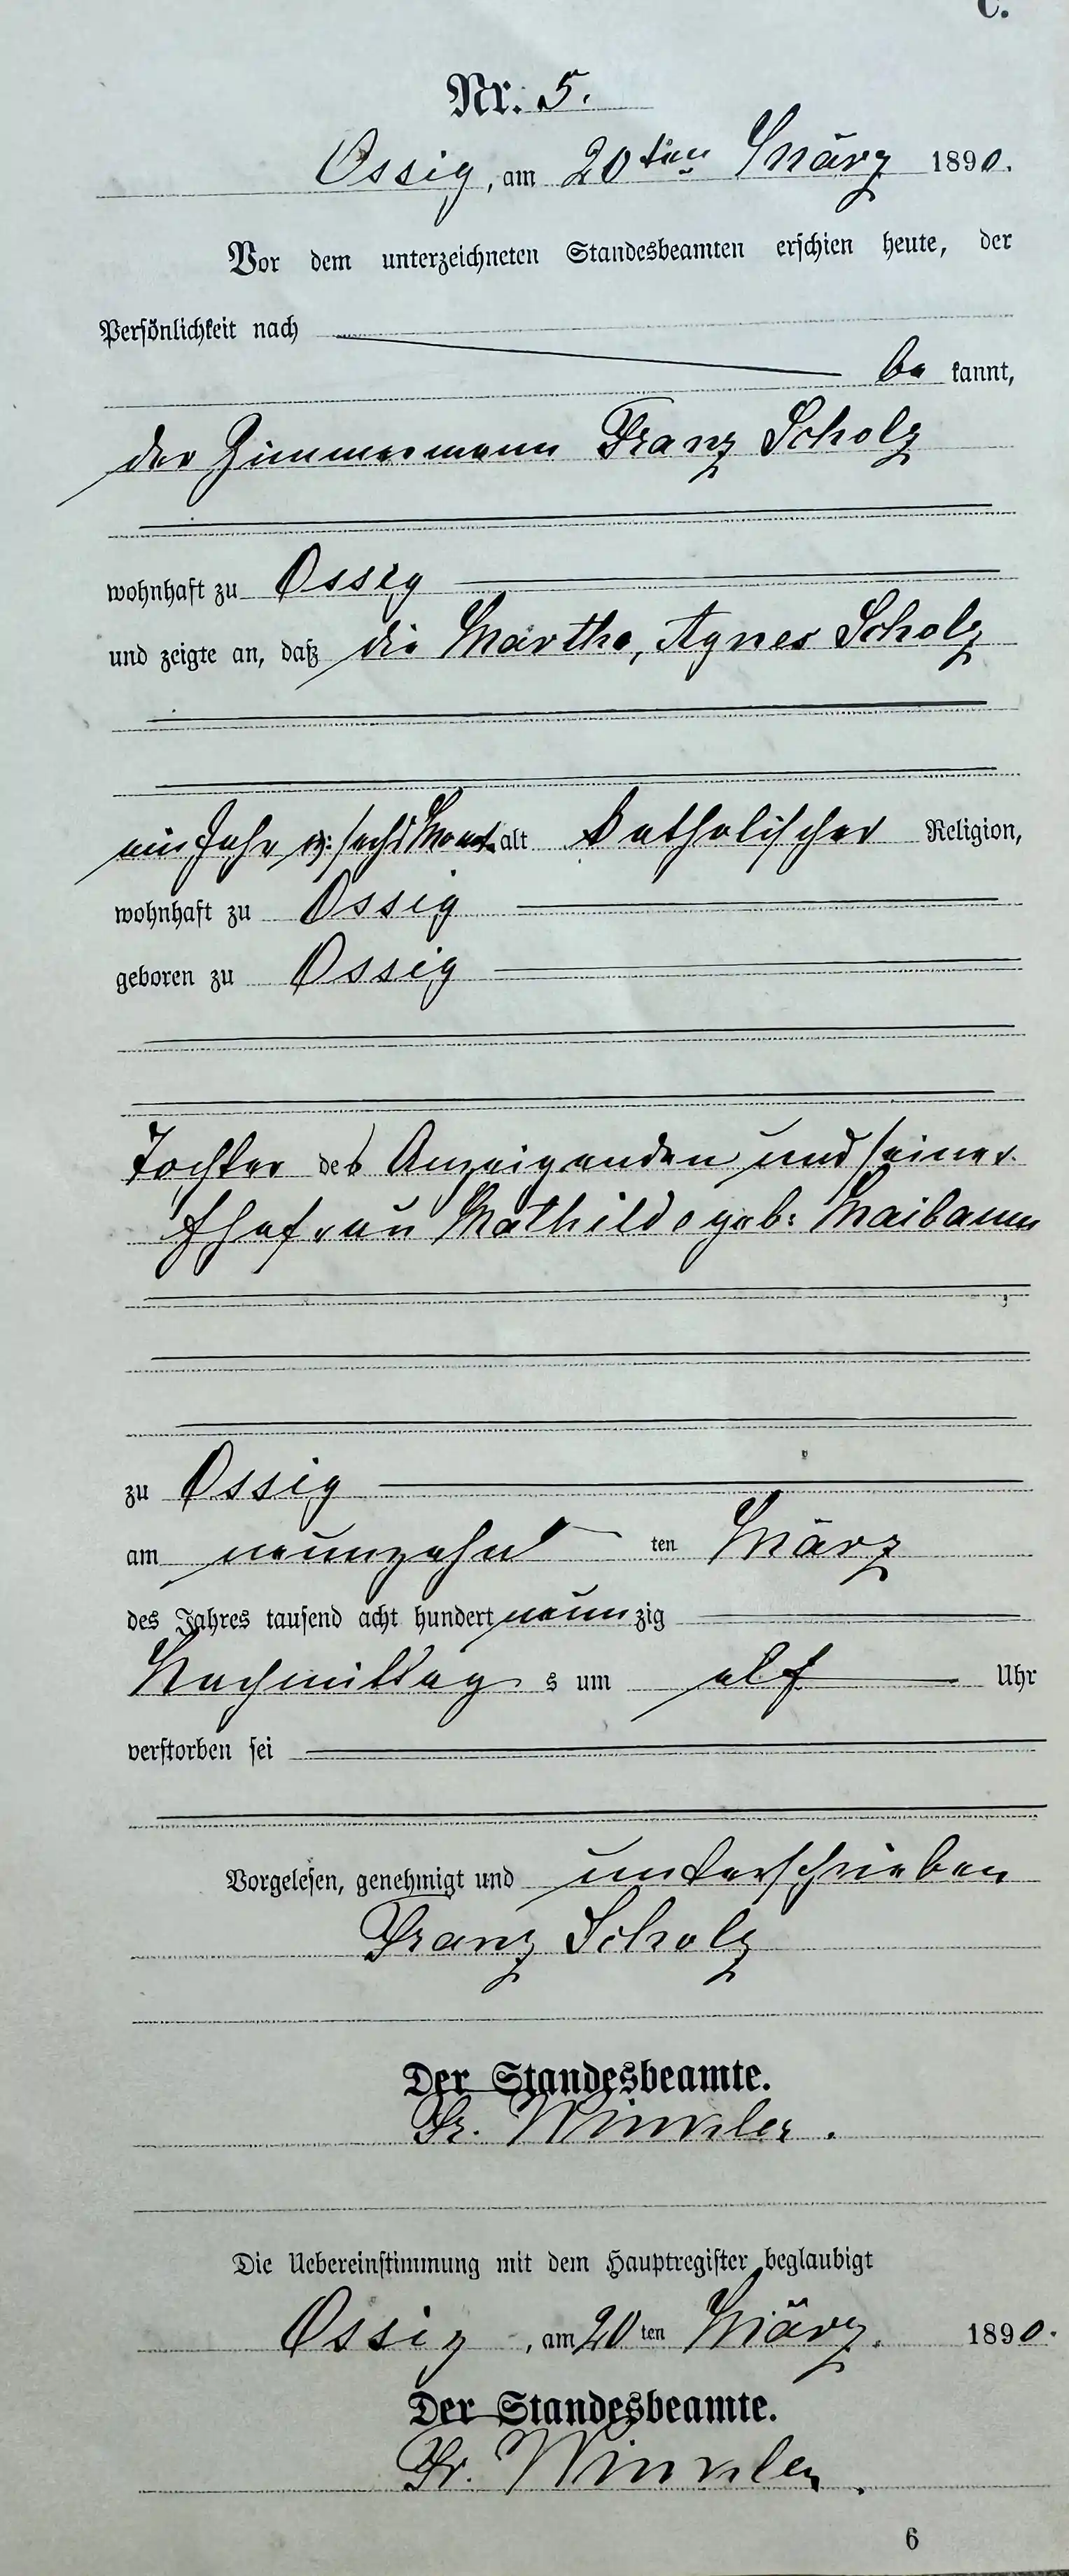 C.
Nr. 5.
Ossig, am 20ten März 1890.
Vor dem unterzeichneten Standesbeamten erschien heute, der
Persönlichkeit nach
be kannt,
der Zimmermann Franz Scholz
wohnhaft zu Ossig
und zeigte an, daß die Martha, Agnes Scholz
ein Jahr u: sechs Monat alt katholischer Religion,
wohnhaft zu Ossig
geboren zu Ossig
Tochter des Anzeigenden und seiner
Ehefrau Mathilde geb: Maibaum
zu Ossig
am neunzehn ten März
des Jahres tausend acht hundert neunzig
Nachmittag s um elf Uhr
verstorben sei
Vorgelesen, genehmigt und unterschrieben
Franz Scholz
Der Standesbeamte.
Fr. Winkler.
Die Uebereinstimmung mit dem Hauptregister beglaubigt
Ossig, am 20 ten März. 1890.
Der Standesbeamte.
Fr. Winkler.
6